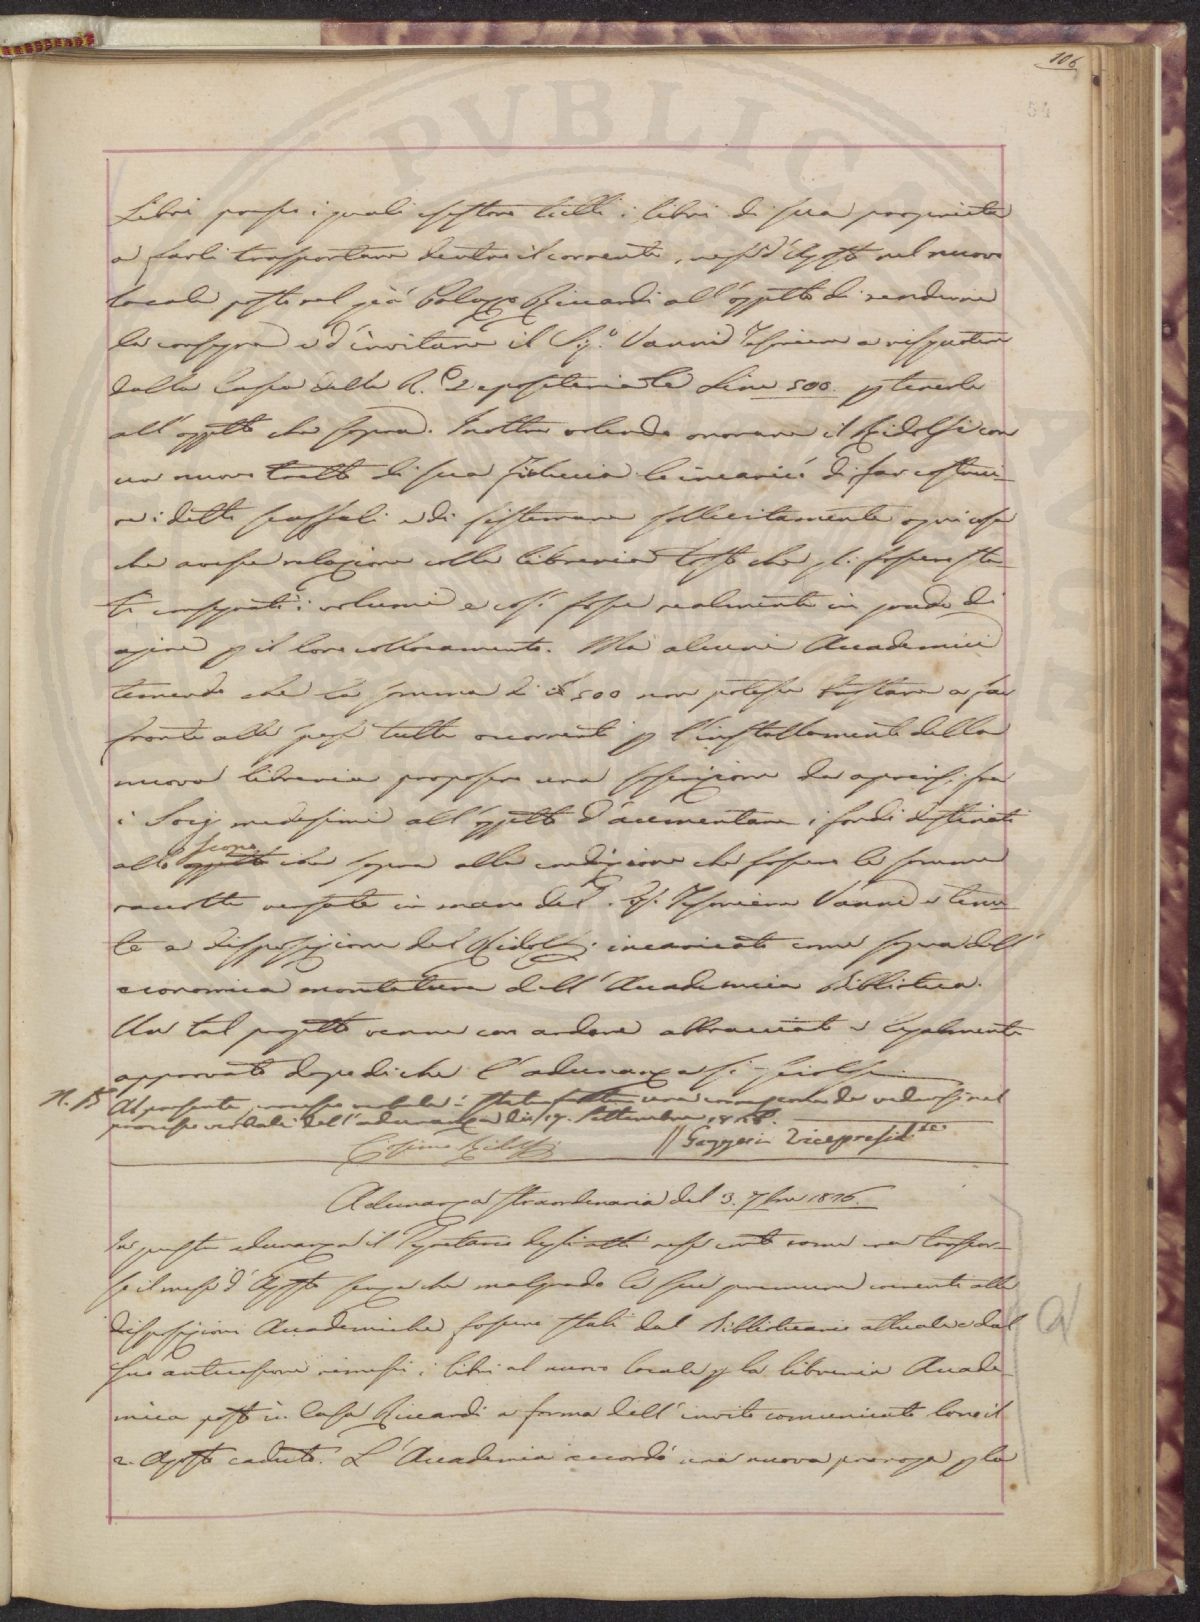 106
54
Libri presso i quali esistono tutti i libri di sua proprietà
a farli trasportare dentro il corrente mese d'Agosto nel nuovo
locale posto nel già Palazzo Riccardi all'oggetto di renderne
la consegna e d'invitare il Sig.e Vanni Tesoriere a risquotere
dalla Cassa della R.e Depositeria le Lire 500. p tenerle
all'oggetto che sopra. Inoltre volendo onorare il Ridolfi con
un nuovo tratto di sua fiducia lo incaricò di far costrui-
re i detti scaffali e di sistemare sollecitamente ogni cosa
che avesse relazione colla libreria tosto che gli fossero sta-
ti consegnati i volumi e così fosse realmente in grado di
agire p il loro collocamento. Ma alcuni Accademici
temendo che la somma di £ 500 non potesse bastare a far
fronte alle spese tutte occorrenti p l'installamento della
nuova libreria proposero una soscrizione da aprirsi fra
i Socj medesimi all'oggetto d'aumentare i fondi destinati
allo scopo che sopra alla condizione che fossero le somme
raccolte versate in mano del Sig. Tesoriere Vanni e tenu-
te a disposizione del Ridolfi incaricato come sopra dell'
economica montatura dell'Accademica Biblioteca.
Un tal progetto venne con ardore abbracciato e legalmente
approvato dopodiche l'adunanza si sciolse.
N. B. Al presente processo verbale è stata fatta una correzione da vedersi nel
processo verbale dell'adunanza dei 19. Settembre 1816.
Cosimo Ridolfi Gazzeri Vicepresid.te
Adunanza straordinaria del 3. 7bre 1816.
In questa adunanza il Segretario degli atti rese conto come era trascor-
so il mese d'Agosto senza che malgrado le sue premure coerenti alle
disposizioni Accademiche fossero stati dal Bibliotecario attuale e dal
suo antecessore rimessi i libri al nuovo locale p la libreria Accade-
mica posto in Casa Riccardi a forma dell'invito comunicato loro il
2. Agosto caduto. L'Accademia accordò una nuova proroga p la